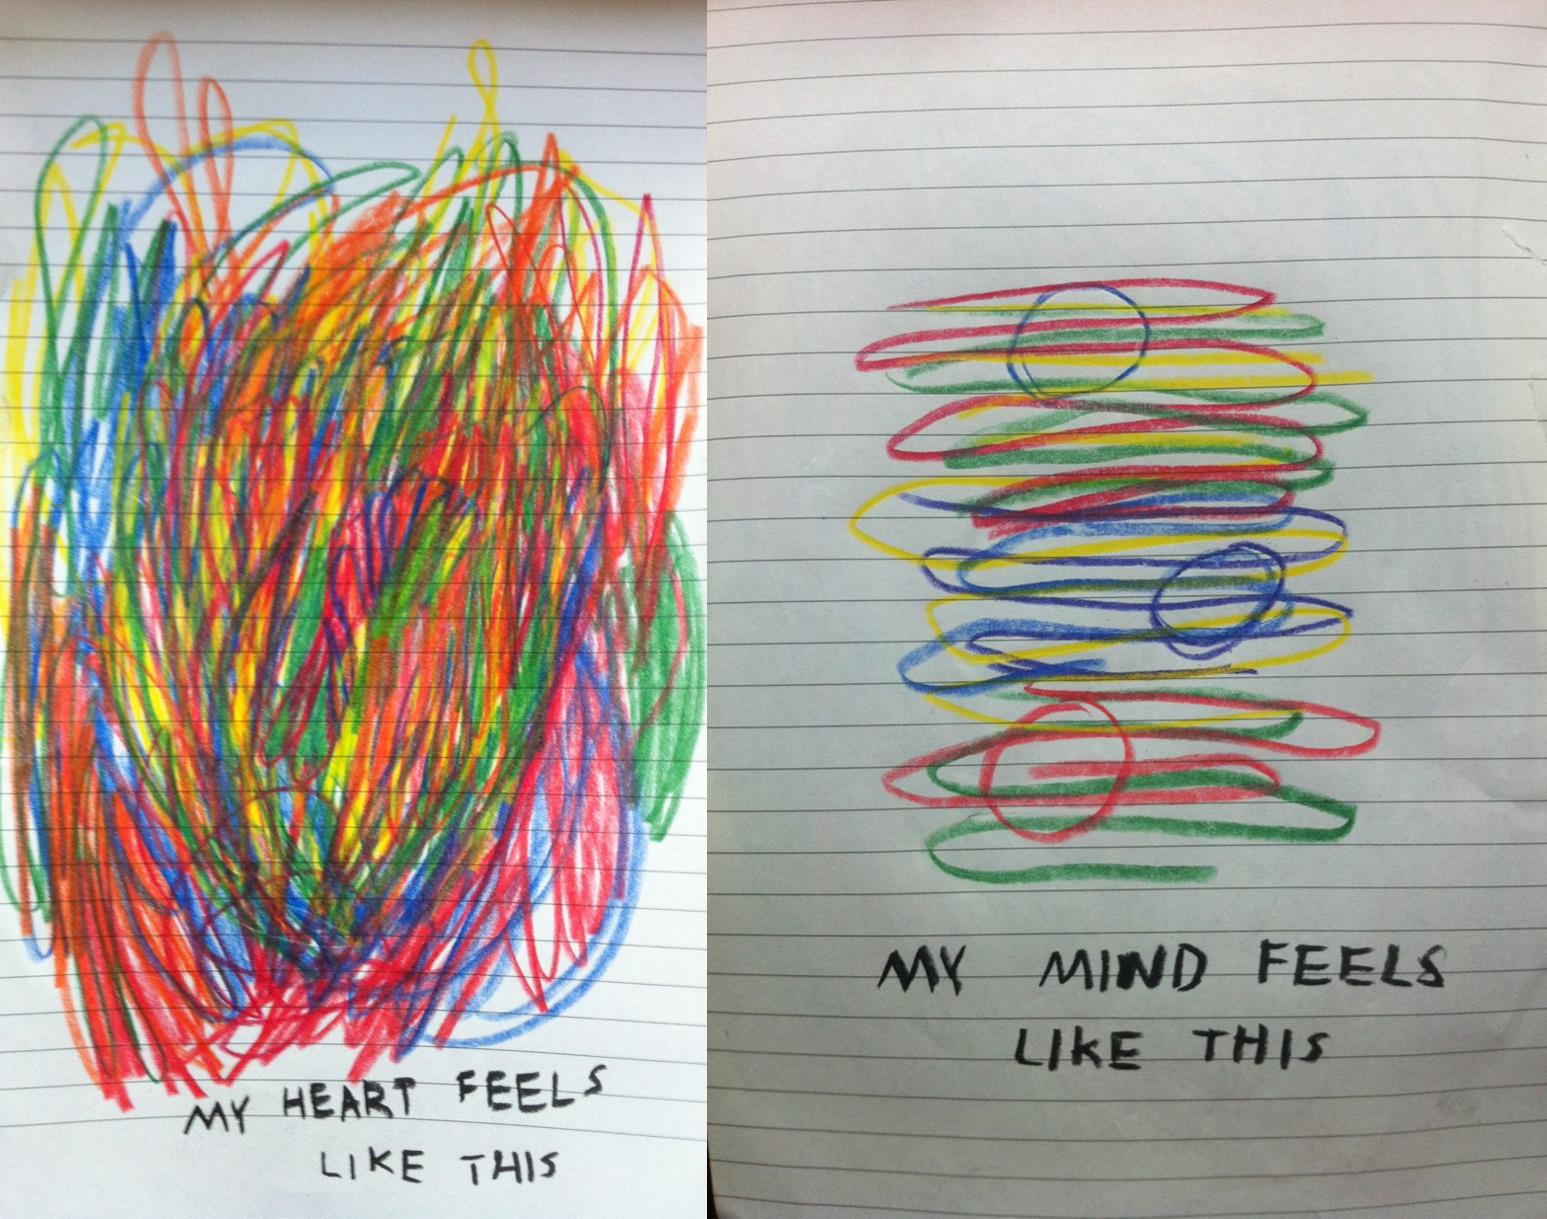 MY HEART FEELS
LIKE THIS
MY MIND FEELS
LIKE THIS